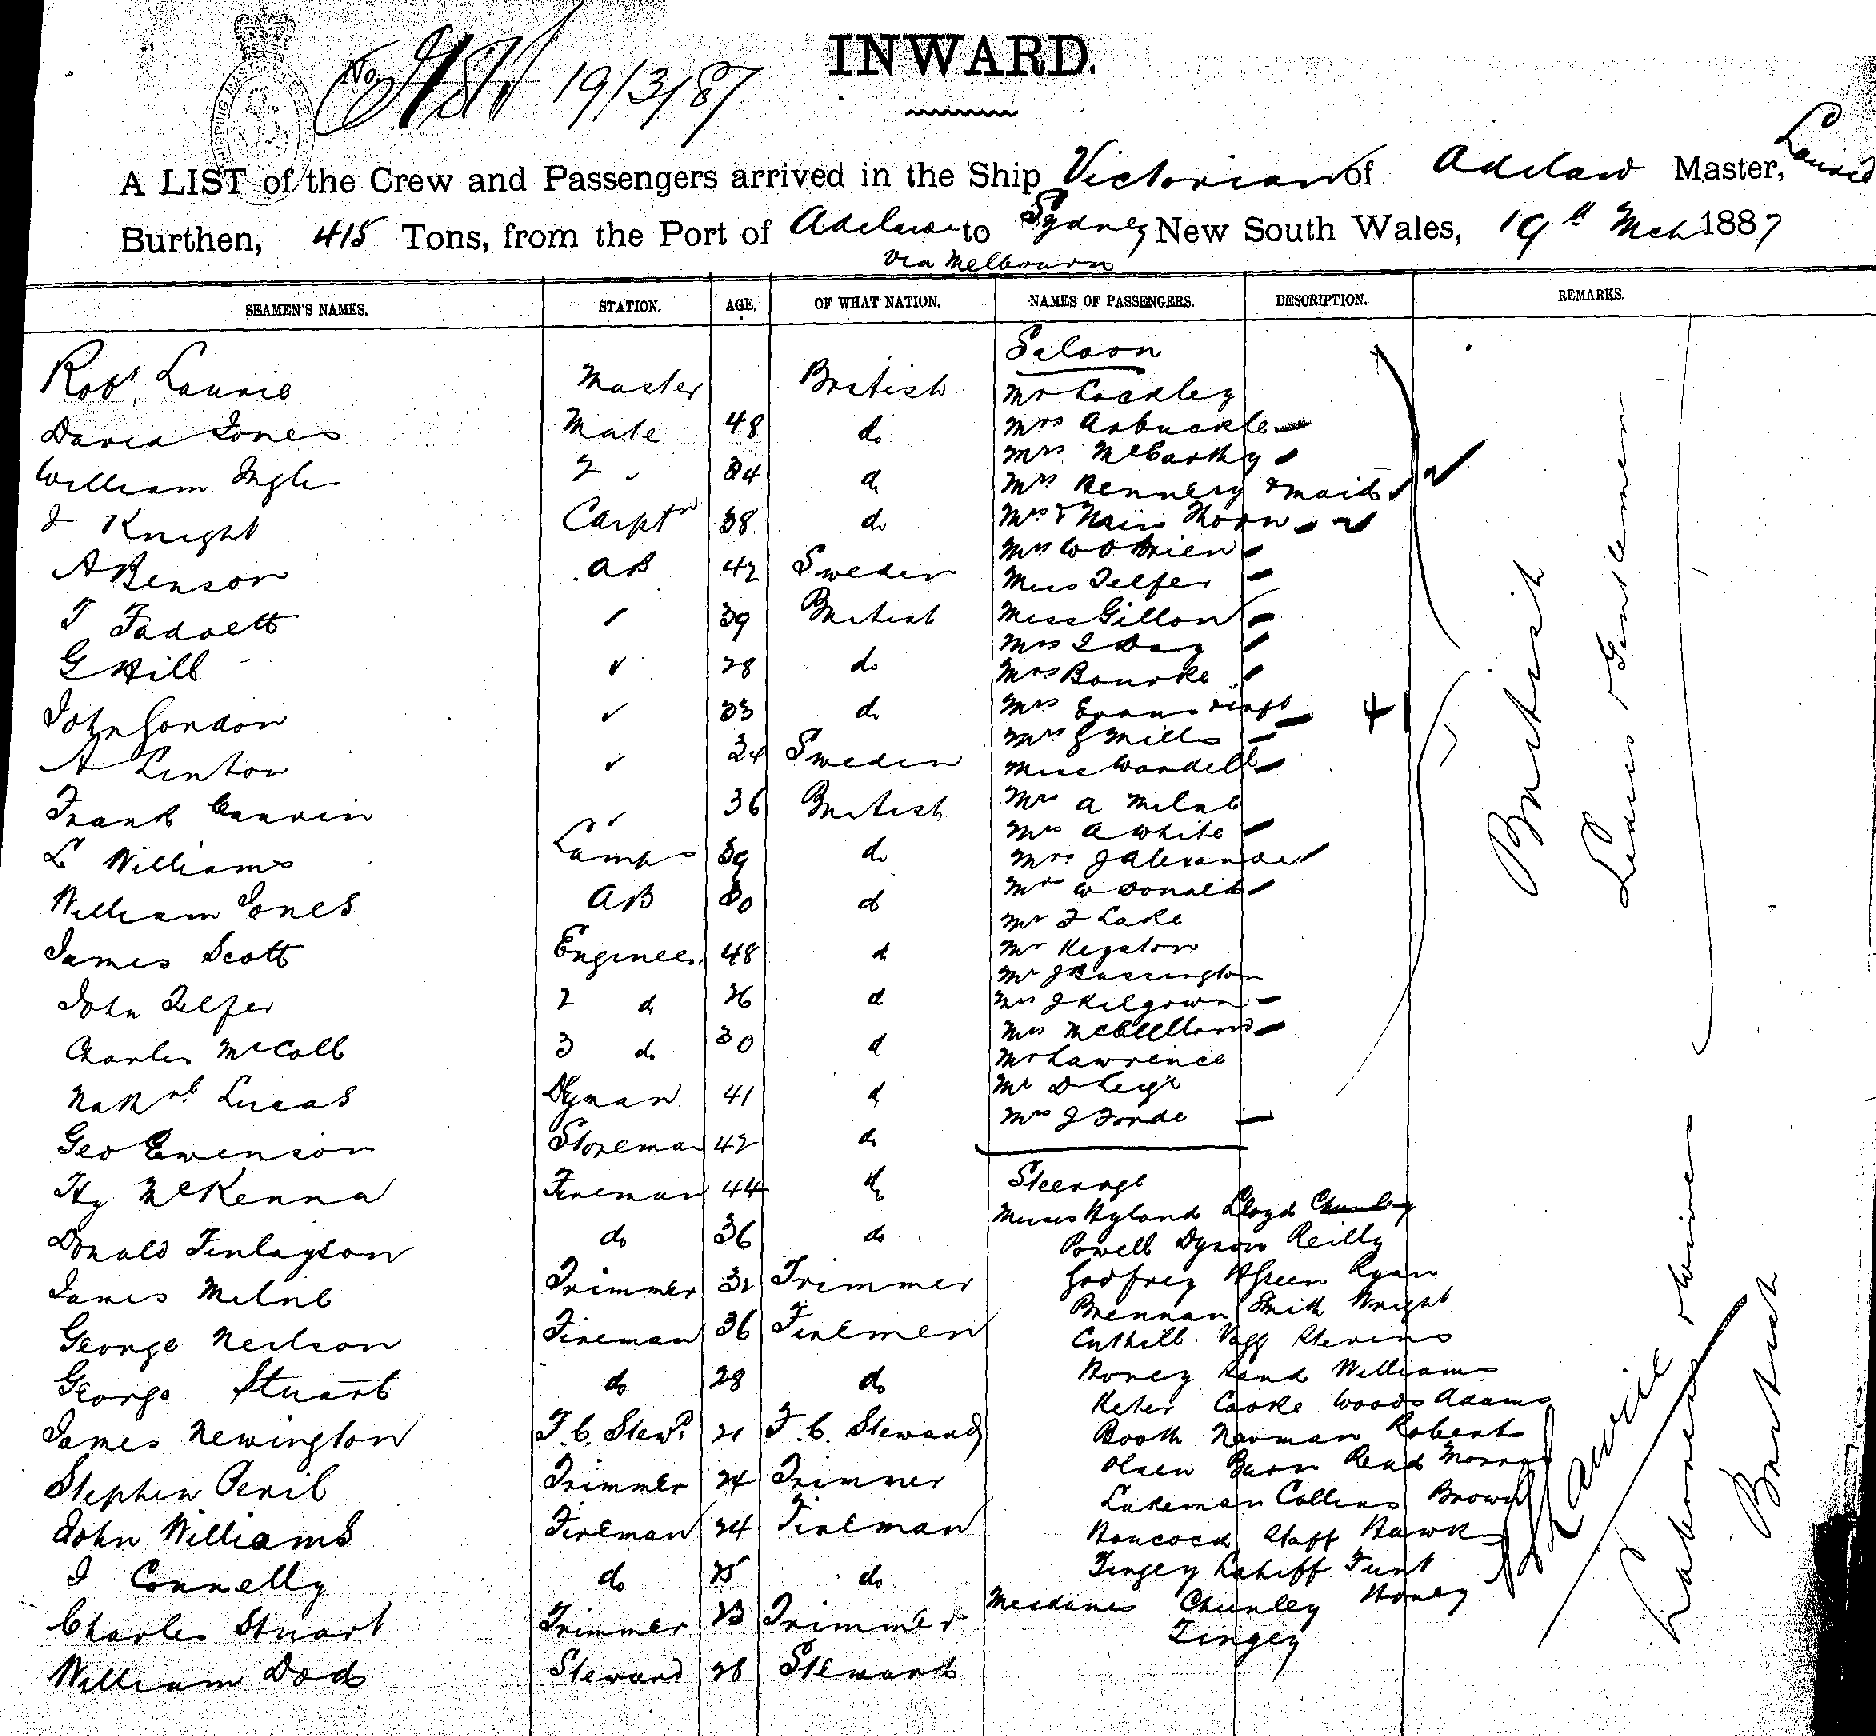 INWARD.
19/3/87
A LIST of the Crew and Passengers arrived in the Ship Victorian of Adelaid Master, Laurie
Burthen, 415 Tons, from the Port of Adelaide to Sydney New South Wales, 19th Mch 1887
Via Melbourn
SEAMEN'S NAMES. STATION. AGE. OF WHAT NATION. NAMES OF PASSENGERS. DESCRIPTION. REMARKS.
Saloon
Robt Laurie Master British Mr
David Jones Mate 48 do Mrs Arbuckle
William 2 " 34 d Mrs McCarthy
Mrs Kennedy & maid
J Knight Carptr 38 do Mrs & Miss Thorn
Mrs W O Brien
A Benson AB 42 Sweden Miss Telfer
T 39 British Miss Gillon
Mrs J Day
G Hill 28 do Mrs Bourke
John Gordon 33 do Mrs Evans & inft
Mrs G Mills
A Linton 34 Sweden Miss Wandell
Frank 36 British Mr A Milne
Mrs A White
L Williams Lamps 39 do Mrs J Alexander
William Jones AB 30 d Mr W Donald
Mr F Lake
James Scott Engineer 48 d Mr
Mr J
John Telfer 2 d 26 d Mrs J Kilgown
Charles McColl 3 do 30 d Mrs McClelland
Mr Lawrence
Lucas Dyman 41 d Mr D
Mrs J Forde
Geo Ewenson Storeman 42 do
Hy McKenna Fireman 44 do Steerage
Messrs Hyland Lloyd Chunley
Donald Finlayson do 36 do Powell Dyson Reilly
James Milne Trimmer 32 Trimmer Godfrey Green Ryan
Brennan Smith Wright
George Neilson Fireman 36 Firemen Cuthill Vagg Stevens
George Stuart do 28 do Honey Rand Williams
Cooke Woods Adams
James Newington F.C. Stewd 21 F.C. Steward Booth Newman Roberts
Olsen Read
Stephen Peril Trimmer 24 Trimmer Lakeman Collins Brown
John Williams Fireman 24 Fireman Hancock Hawk
J Connelly do 25 do Tingey
Mesdames Chunley Honey
Charles Stuart Trimmer 23 Trimmer Tingey
William Dod Steward 28 Steward
British
Ladies & Gentlemen
British